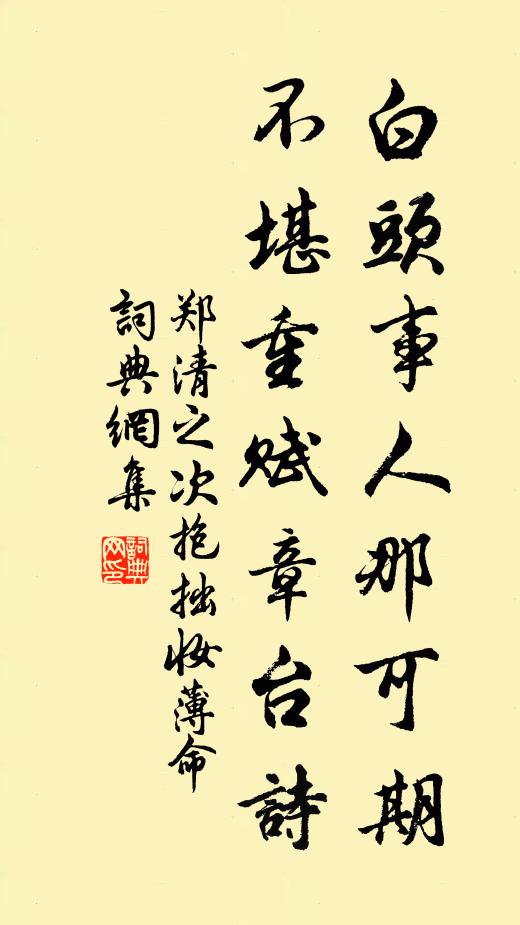 白頭事人那可期
不堪重赋章台詩
郑清之次抱拙妆薄命
詞典網集
詞典網印